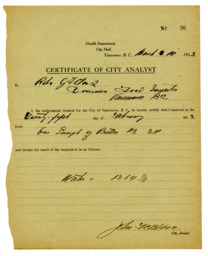 No 26
Health Department,
City Hall,
Vancouver, B. C., March 10 1913
CERTIFICATE OF CITY ANALYST
To
Dominion Food
Vancouver BC
I, the undersigned Analyst for the City of Vancouver, B. C., do hereby certify that I received on the
Twenty fifth day of February 1913
From
one Sample of Butter
and declare the result of the Analysis to be as follows:
Water - 13.54 %
City Analyst